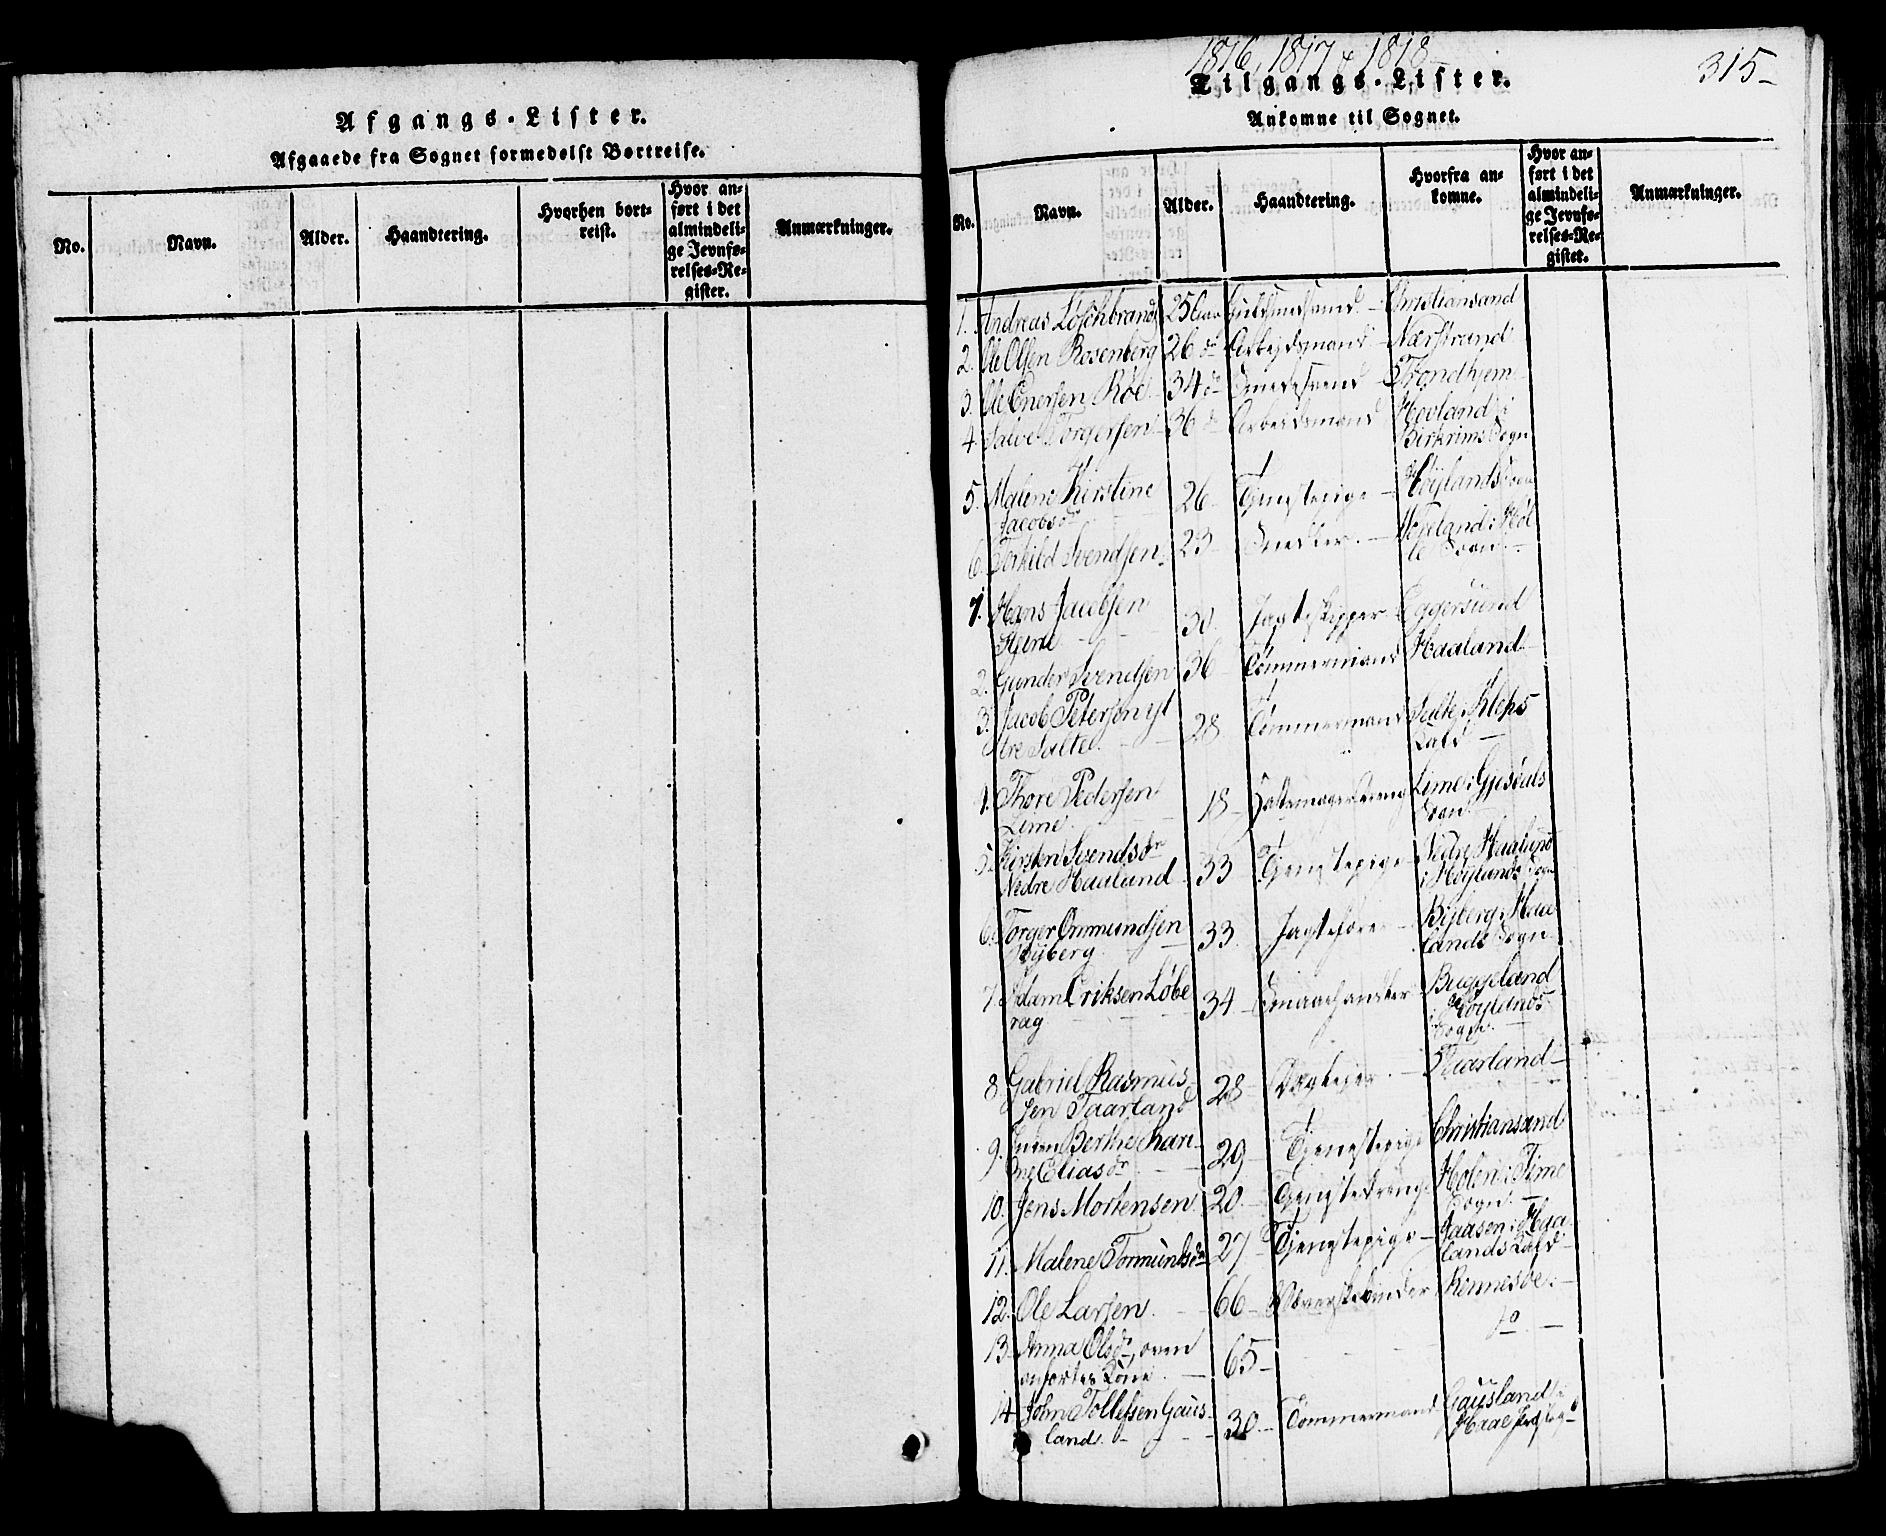 Afgangs-Lister.
Afgaaede fra Sognet formedelst Bortreise.
No. Navn. Alder. Haandtering. Hvorhen bort-
reist. Hvor an-
ført i det
almindeli-
ge Jevnfø-
relses-Re-
gister. Anmærkninger.
1816, 1817 & 1818
315-
Tilgangs-Lister.
Ankomne til Sognet.
No. Navn. Alder. Haandtering. Hvorfra an-
komne. Hvor an-
ført i det
almindeli-
ge Jevnfø-
relses-Re-
gister. Anmærkninger.
1. Andreas Löschbrandt 25 Aar Guldsmedsvend - Christiansand
2. Ole Olsen Rosenberg 26 do Arbejdsmand - Nærstrand
3. Ole Enersen Röe 34 do Smedesvend - Trondhjem
4. Salve Torgersen 36 do Arbeidsmand Hovland i
Birkrims Sogn
5. Malene Kirstine
Jacobsdr 26 - Tjenestepige - Höylands Sogn
6. Torkild Svendsen 23 - Snedker. - i Höl
le Sogn.
1. Hans Jacobsen
30 Jagteskipper Eggersund
2. Gunder Svendsen 36 Tömmermand Haaland
3. Jacob Petersen yt
tre Salte. 28 Tömmermand Salte i Kleps
4. Thore Pedersen
Lime. 18 - Lime i Gjesdals
Sogn
5. Kirsten Svendsdr
Nedre Haaland 33 Tjenestepige - Nedre Haaland
i Höylands Sogn
6. Torger Ommundsen
Byberg. 33. Byberg i Haa
lands Sogn
7. Adam Eriksen Löbe
rag 34. - Smaahandler Buggeland
i Höylands
Sogn.
8 Gabriel Rasmus
sen Taarland 28 - Taarland -
9. Berthe Kari-
ne Eliasdr 29 Tjenestepige Christiansand
10. Jens Mortensen 20. - Tjenestedreng Holen i Time
Sogn. -
11. Malene Tormundsdr 27 Tjenestepige - Aasen i Haa
lands
12. Ole Larsen. - 66 - Rennesöe. -
13. Anna Olsdr, oven
anförtes Kone. - 65 - do -
14 John Tollefsen Gaus-
land. - 30. - Tömmermand Gausland i
Haae